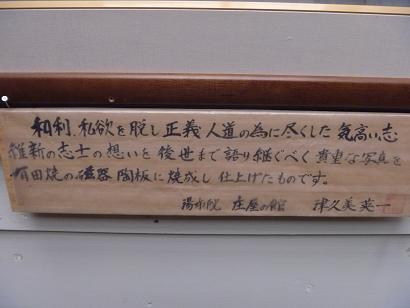 和利、私欲を脱し正義人道の為に尽くした気高い志
維新の志士の想いを後世まで語り継ぐべく貴重な写真を
有田焼の磁器陶板に焼成し仕上げたものです。
湯布院 庄屋の館 津久美英一